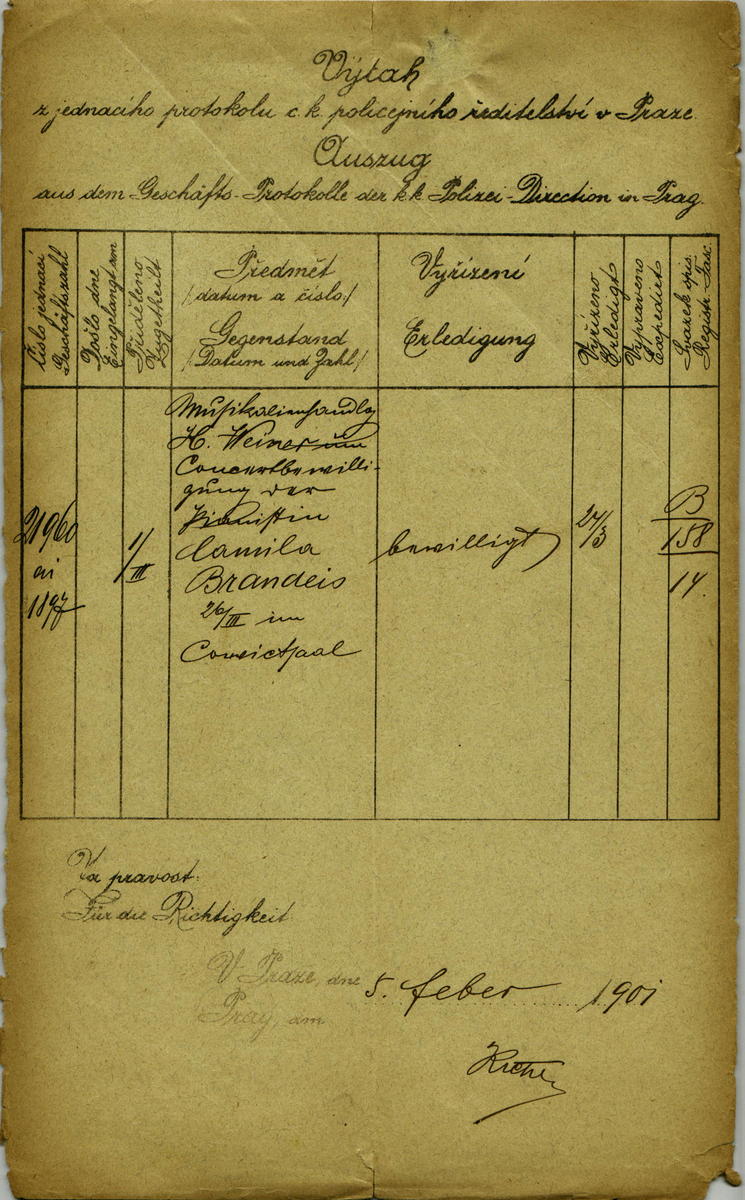 Výtah
z jednacího protokolu c. k. policejního ředitelství v Praze.
Auszug
aus dem Geschäfts-Protokolle der k.k. Polizei-Direction in Prag.
Číslo jednací
Geschäftszahl
Došlo dne
Eingelangt am
Přiděleno
Zugetheilt
Předmět
/datum a číslo/
Gegenstand
/Datum und Zahl/
Vyřízení
Erledigung
Vyřízeno
Erledigt
Vypraveno
Expedirt
Svazek spis.
Registr. Fasc.
21960
ai
1897
1/III
Musikalienhandlg
H. Weiner um
Concertbewilli-
gung der
Pianistin
Camila
Brandeis
26/III im
Convictsaal
bewilligt
24/3
B
158
14.
Za pravost:
Für die Richtigkeit
V Praze, dne
Prag, am
5. feber 1901